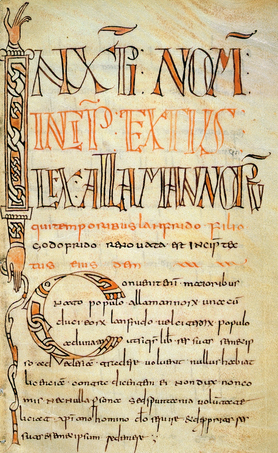 IN XP̅I: NOM̅:
INCIP̅ TEXTUS
LEX ALLAMANNORU̅
qui temporibus lanfrido filio
godofrido renouata est incip te
tus eius dem
Conuenit eni̅ maioribus
nato populo allamannorum una cu̅
duci eorum lanfrido uel citerorum populo
adunato ut si quis liber res suas
ecclesiam tradere uoluerit nullus habeat
licenciam contradicere ei non dux non co
mis nec ulla persona sed spontanea uoluntate
liceat xp̅iano homini d̅o seruire et de proprias res
suas semetipsum redemere